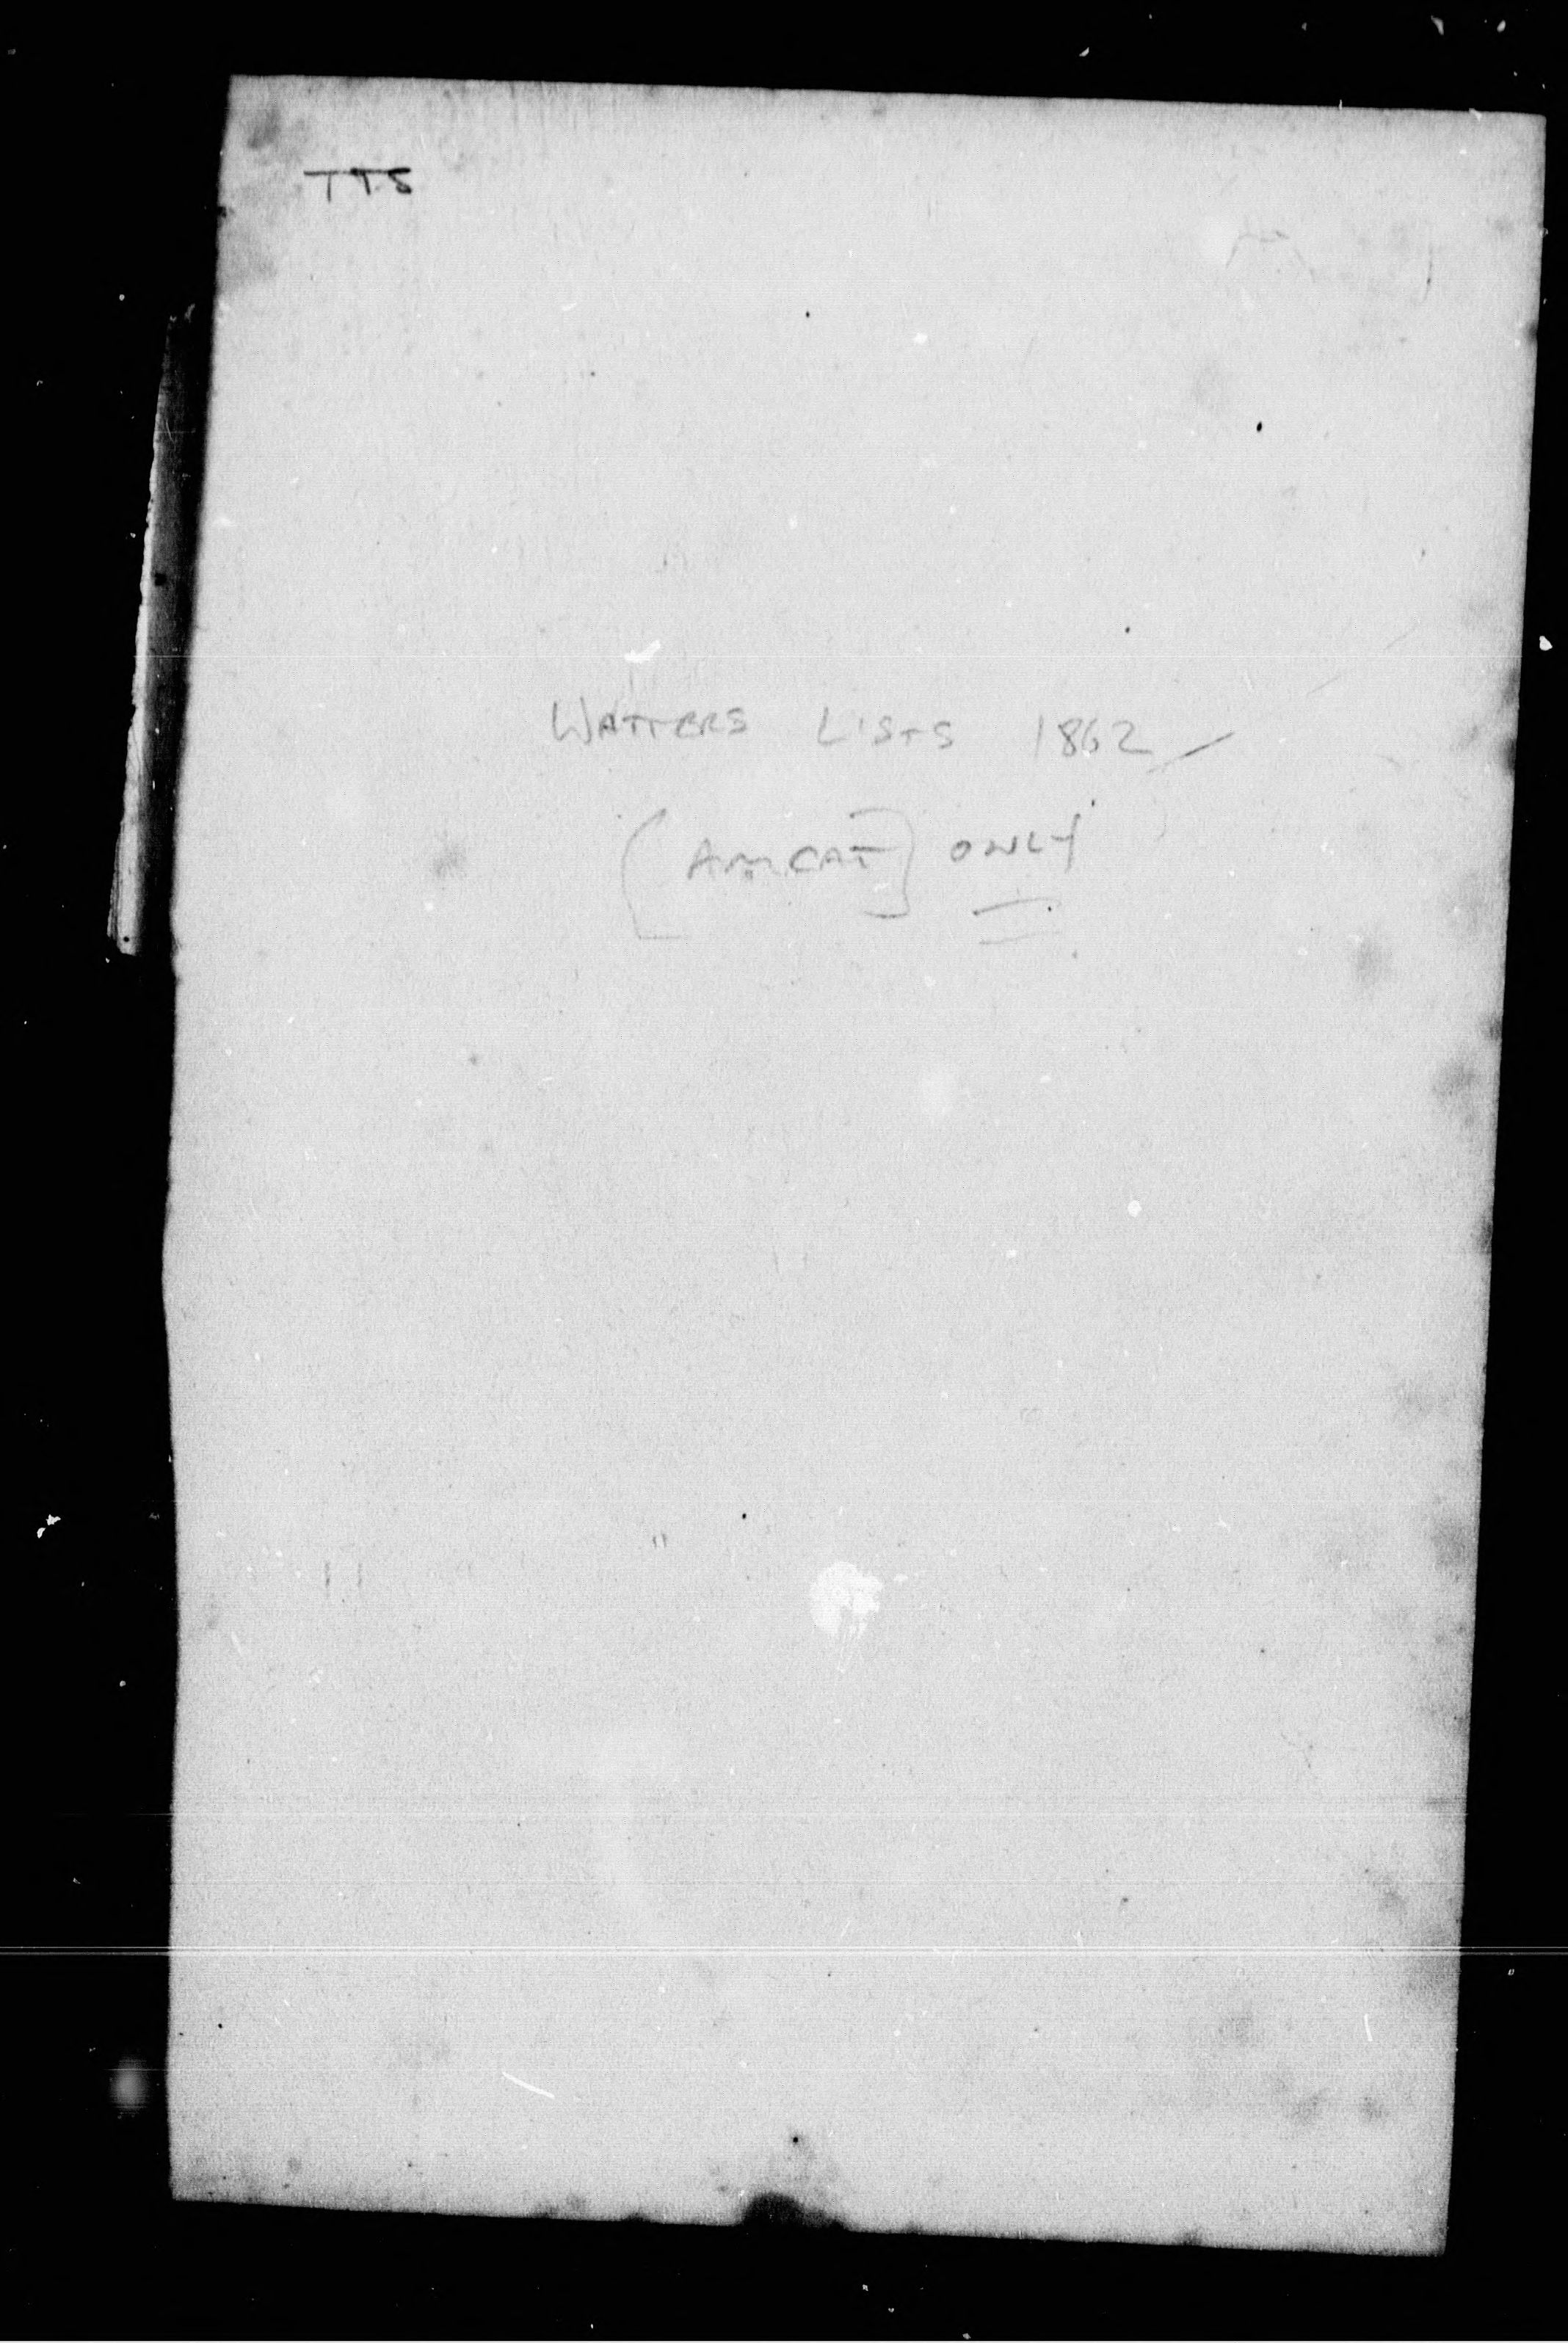 TTS
WATTERS LISTS 1862
[AMCAT] ONLY